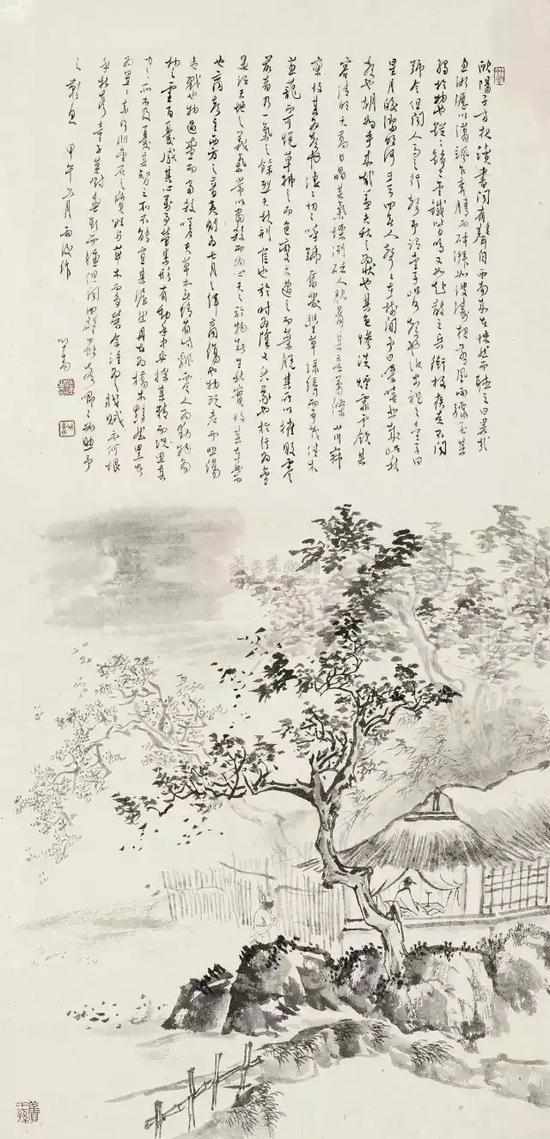 歐陽子方夜讀書聞有聲自西南來者悚然而聽之曰異哉
初淅瀝以瀟颯忽奔騰而砰湃如波濤夜驚風雨驟至其
觸於物也鏦鏦錚錚金鐵皆鳴又如赴敵之兵銜枚疾走不聞
號令但聞人馬之行聲予謂童子此何聲也汝出視之童子曰
星月皎潔明河在天四無人聲聲在樹間予曰噫嘻悲哉此秋
聲也胡為乎來哉蓋夫秋之為狀也其色慘淡煙霏雲斂其
容清明天高日晶其氣慄冽砭人肌骨其意蕭條山川寂
寥故其為聲也淒淒切切呼號奮發豐草綠縟而爭茂佳木
蔥蘢而可悅草拂之而色變木遭之而葉脫其所以摧敗零
落者乃一氣之餘烈夫秋刑官也於時為陰又兵象也於行為金
是謂天地之義氣常以肅殺而為心天之於物春生秋實故其在樂
也商聲主西方之音夷則為七月之律商傷也物既老而悲傷
夷戮也物過盛而當殺嗟夫草木無情有時飄零人為動物惟
物之靈百憂感其心萬事勞其形有動乎中必搖其精而況思其
力之所不及憂其智之所不能宜其渥然丹者為槁木黟然黑者
為星星奈何非金石之質欲與草木而爭榮念誰為之戕賊亦何恨
乎秋聲童子莫對垂頭而睡但聞四壁蟲聲唧唧如助予
之歎息 甲午六月雨後作
心畬